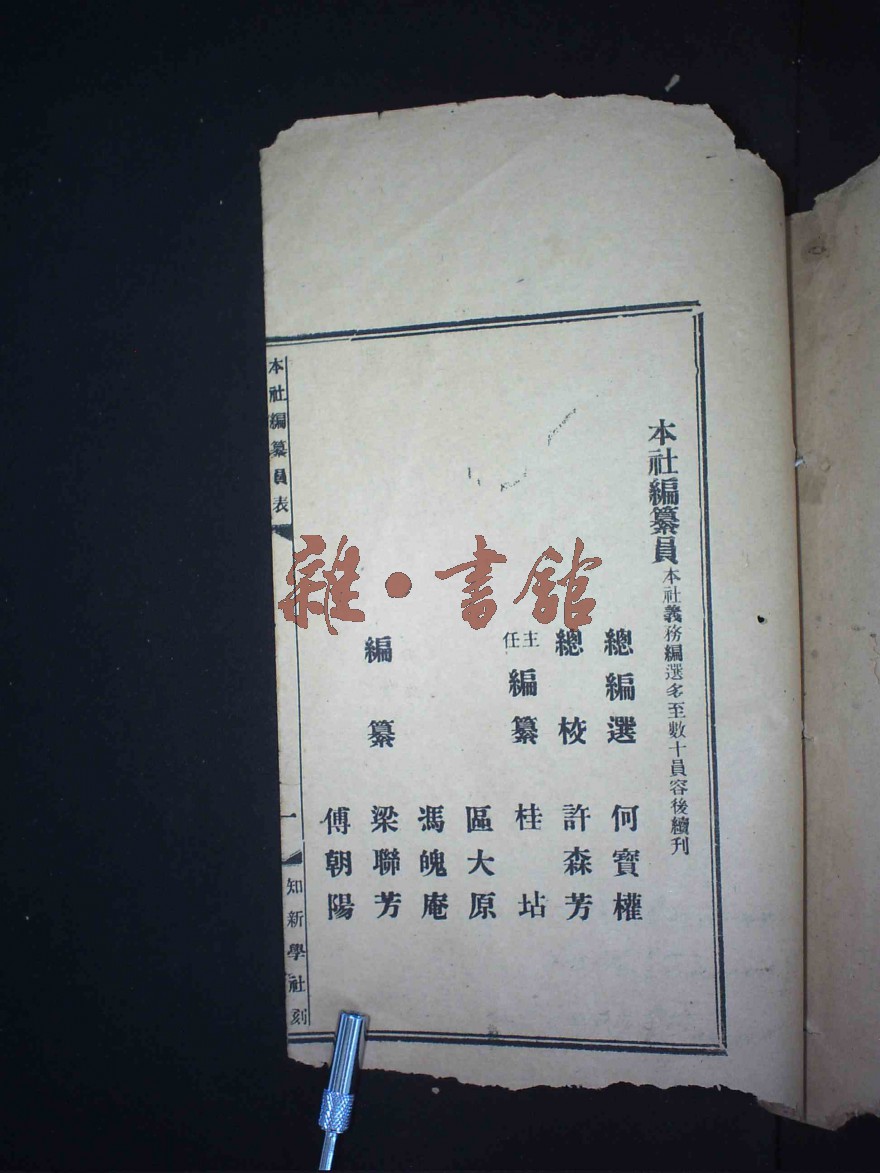 本社編纂員 本社義務編選多至數十員容後續刊
總編選 何寶權
總校 許森芳
主任編纂 桂坫
區大原
馮愧庵
編纂 梁聯芳
傅朝陽
本社編纂員表 一 知新學社刻
雜·書館